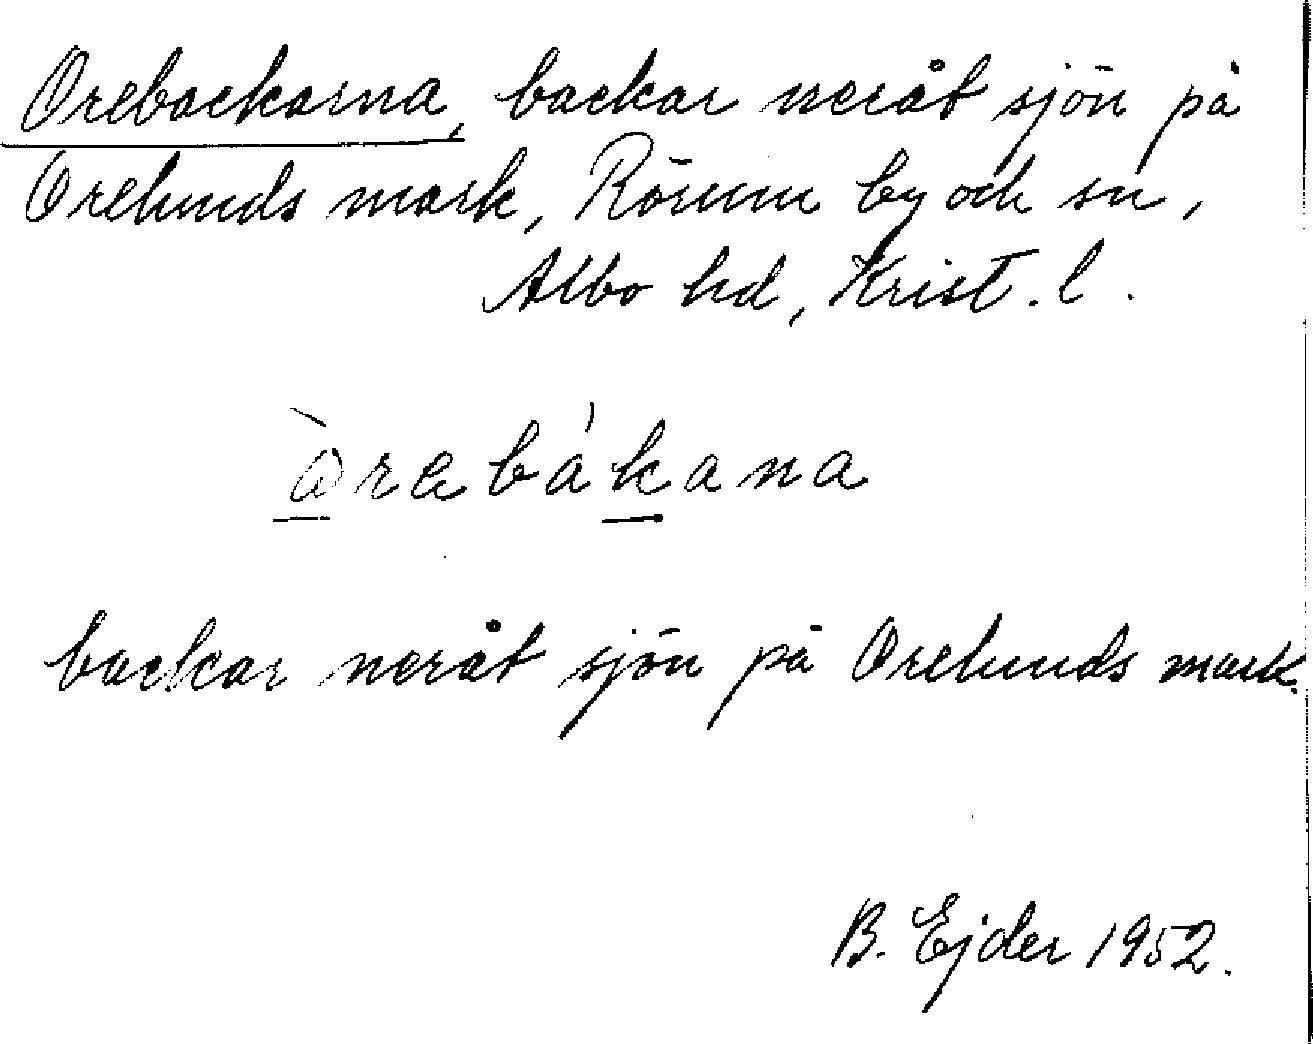 Orebackarna, backar neråt sjön på
Orelunds mark, Rörum by och sn,
Albo hd, Krist. l.
òrebákana
backar neråt sjön på Orelunds mark.
B. Ejder 1952.